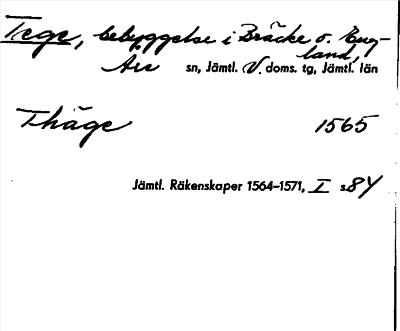 Tege, bebyggelse i Bräcke o. Eng-
land,
Åre sn, Jämtl. V. doms. tg, Jämtl. län
Thäge 1565
Jämtl. Räkenskaper 1564–1571, I s. 84